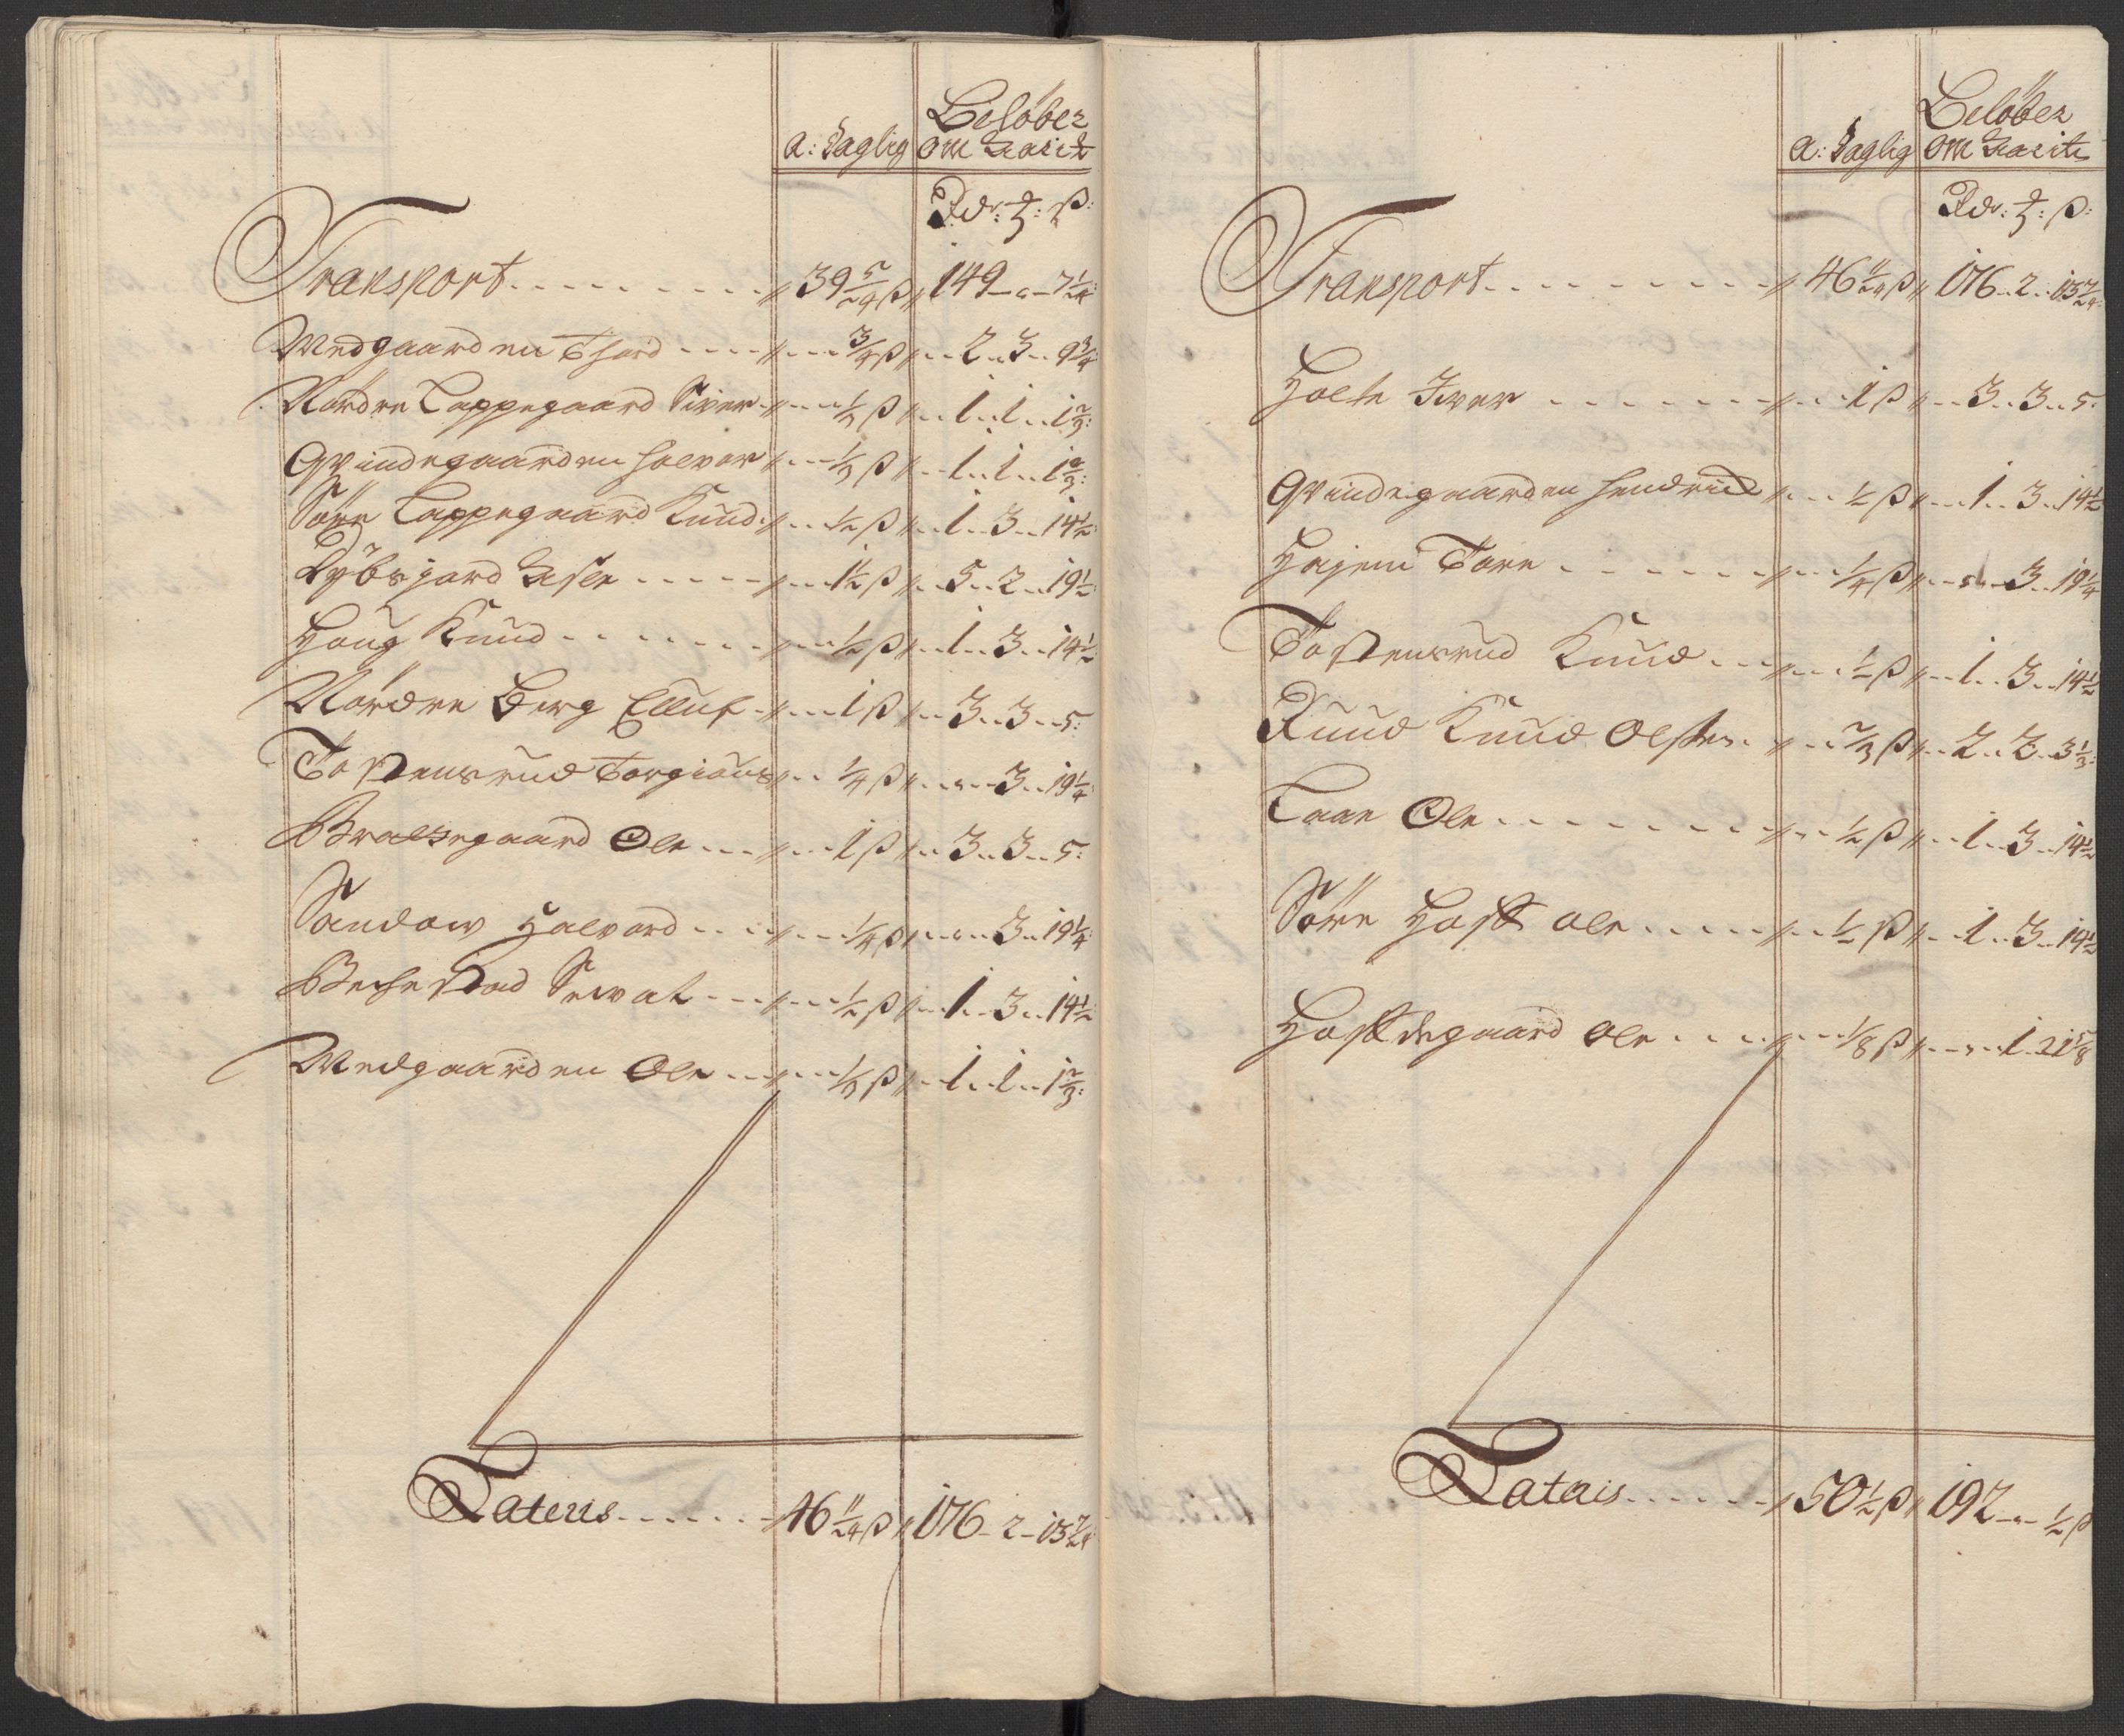 Beløber
a: Daglig om Aarit
Rdr: ȝ: ß:
Transport . . . . . . . . . 39 5/24 ß 149 - " - 7 1/24
Wedgaarden Thord . . . . 3/4 ß . . 2 . . 3 . . 9 3/4:
Nordre Lappegaard Siver . . 1/3 ß . . 1 . . 1 . . 1 2/3:
Qvindegaarden Halvor . . 1/3 ß . . 1 . . 1 . . 1 2/3:
Søre Lappegaard Knud . . 1/2 ß . . 1 . . 3 . . 14 1/2
Dybsjord Asle . . . . . 1 1/2 ß . . 5 . . 2 . . 19 1/2
Houg Knud . . . . . . . 1/2 ß . . 1 . . 3 . . 14 1/2
Nordre Berg Elluf . . . 1 ß . . 3 . . 3 . . 5:
Tostensrud Torgiuus . . 1/4 ß . . " . . 3 . . 19 1/4
Bralsegaard Ole . . . . 1 ß . . 3 . . 3 . . 5:
Sandow Halvord . . . . 1/4 ß . . " . . 3 . . 19 1/4:
Sewat . . . . 1/2 ß . . 1 . . 3 . . 14 1/2
Wedgaarden Ole . . . . 1/3 ß . . 1 . . 1 . . 1 2/3:
Lateris . . . . . . 46 11/24 ß 176 - 2 - 13 7/24
Beløber
a: Daglig om Aarit
Rdr: ȝ: ß:
Transport . . . . . . . . . 46 11/24 ß 176 . . 2 . . 13 7/24
Holte Iver . . . . . . . 1 ß . . 3 . . 3 . . 5:
Qvindegaarden Hendrich . . 1/2 ß . . 1 . . 3 . . 14 1/2
Hajem Tore . . . . . . 1/4 ß . . " . . 3 . . 19 1/4
Tostensrud Knud . . . 1/2 ß . . 1 . . 3 . . 14 1/2
Ruud Knud Olsen . . 2/3 ß . . 2 . . 2 . . 3 1/3:
Laae Ole . . . . . . . 1/2 ß . . 1 . . 3 . . 14 1/2
Søre Hoff Ole . . . . . 1/2 ß . . 1 . . 3 . . 14 1/2
Hoffdegaard Ole . . . . 1/8 ß . . " . . 1 . . 21 5/8
Lateris . . . . . . 50 1/2 ß 192 - " - 1/2 ß